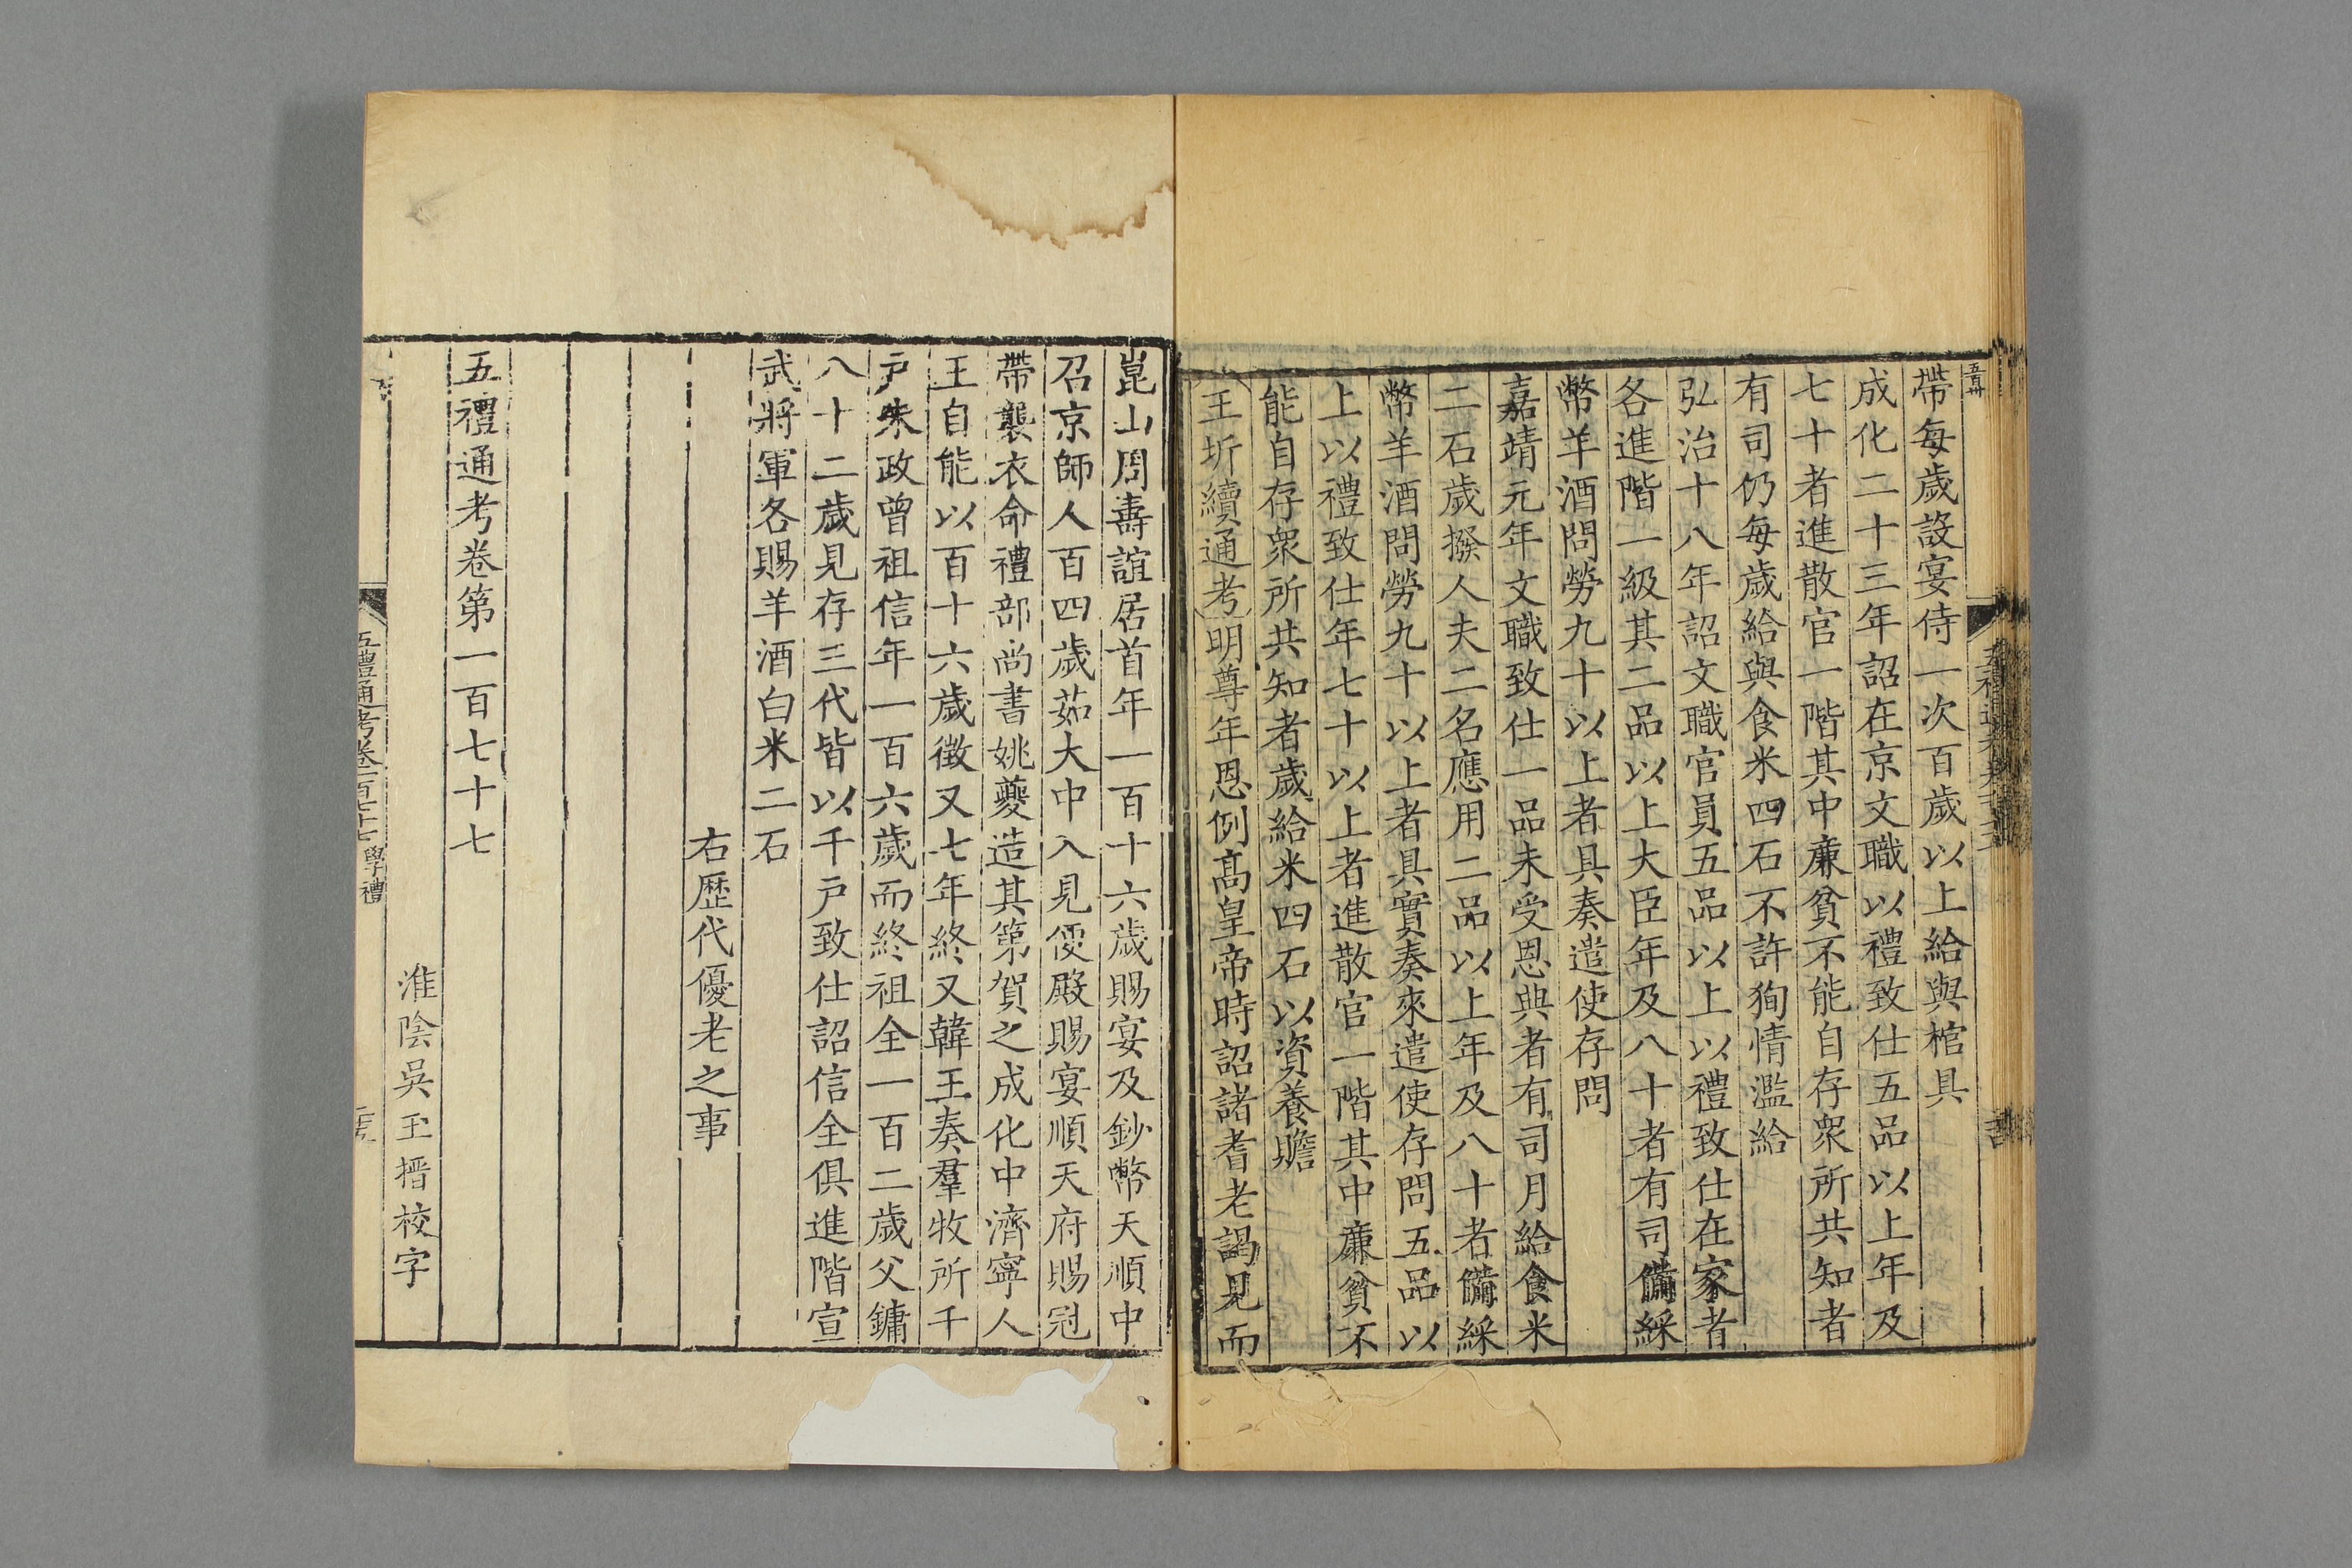 帶每歲設宴侍一次百歲以上給與棺具
成化二十三年詔在京文職以禮致仕五品以上年及
七十者進散官一階其中廉貧不能自存衆所共知者
有司仍每歲給與食米四石不許狥情濫給
弘治十八年詔文職官員五品以上以禮致仕在家者
各進階一級其二品以上大臣年及八十者有司備綵
幣羊酒問勞九十以上者具奏遣使存問
嘉靖元年文職致仕一品未受恩典者有司月給食米
二石歲撥人夫二名應用二品以上年及八十者備綵
幣羊酒問勞九十以上者具實奏來遣使存問五品以
上以禮致仕年七十以上者進散官一階其中廉貧不
能自存衆所共知者歲給米四石以資養贍
王圻續通考明尊年恩例髙皇帝時詔諸耆老謁見而
崑山周壽誼居首年一百十六歲賜宴及鈔幣天順中
召京師人百四歲茹大中入見便殿賜宴順天府賜冠
帶襲衣命禮部尚書姚夔造其第賀之成化中濟寧人
王自能以百十六歲徵又七年終又韓王奏羣牧所千
戸朱政曾祖信年一百六歲而終祖全一百二歲父鏞
八十二歲見存三代皆以千戸致仕詔信全俱進階宣
武將軍各賜羊酒白米二石
右歷代優老之事
五禮通考卷第一百七十七
淮陰吳玉搢校字
五禮通考卷一百七十七 學禮